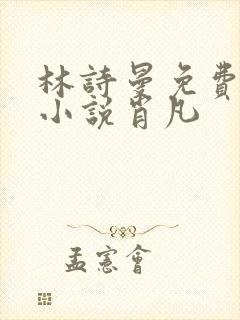 林詩曼免費
小說肖凡
孟憲會